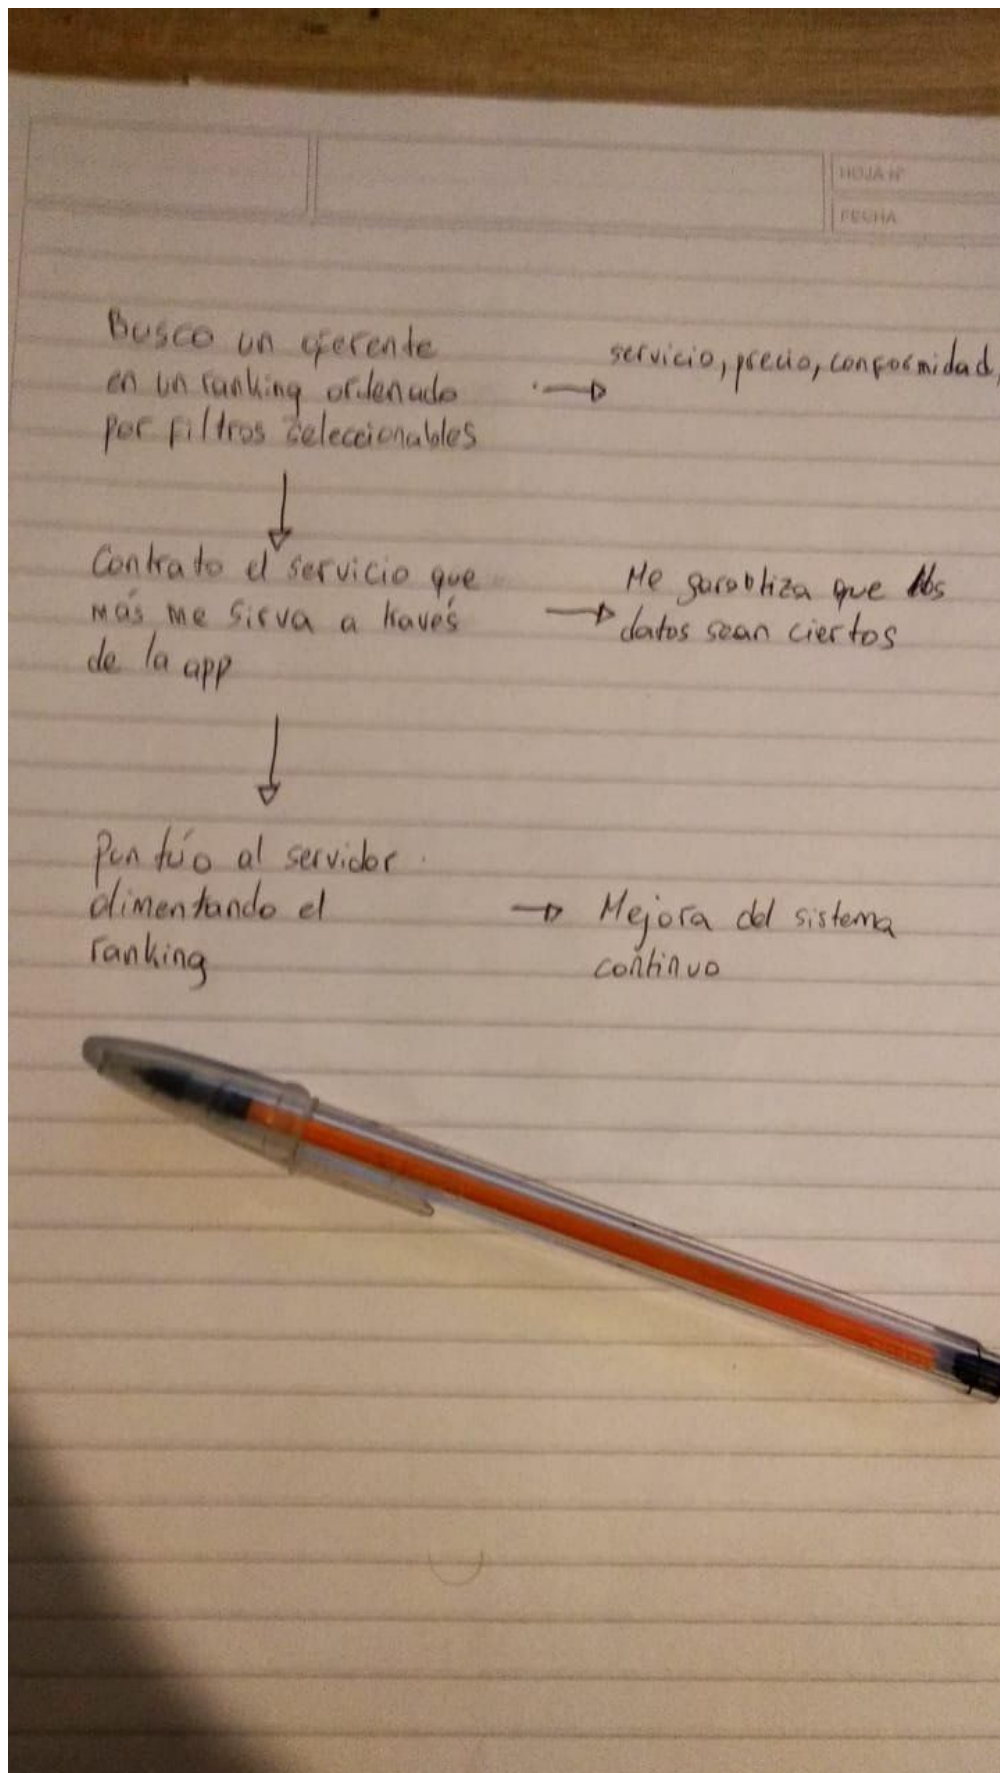 HOJA Nº
FECHA
Busco un oferente
en un ranking ordenado
por filtros seleccionables
servicio, precio, conformidad,
Contrato el servicio que
más me sirva a través
de la app
Me garantiza que los
datos sean ciertos
Puntúo al servidor
alimentando el
ranking
Mejora del sistema
continuo